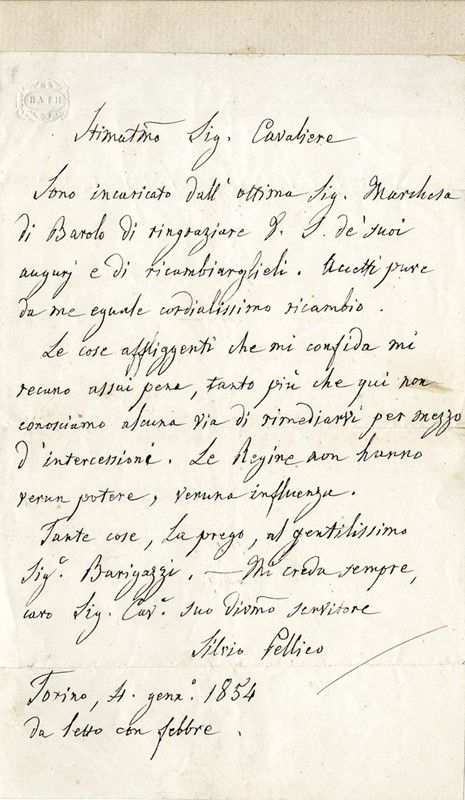 BATH
Stimatm̃o Sig. Cavaliere
Sono incaricato dall' ottima Sig. Marchesa
di Barolo di ringraziare V. S. de' suoi
augurj e di ricambiarglieli. Accetti pure
da me eguale cordialissimo ricambio.
Le cose affliggenti che mi confida mi
recano assai pena, tanto più che qui non
conosciamo alcuna via di rimediarvi per mezzo
d'intercessioni. Le Regine non hanno
verun potere, veruna influenza.
Tante cose, La prego, al gentilissimo
Sigr. Barigazzi. — Mi creda sempre,
caro Sig. Cavr. suo divm̃o servitore
Silvio Pellico
Torino, 4. gennº. 1854
da letto con febbre.